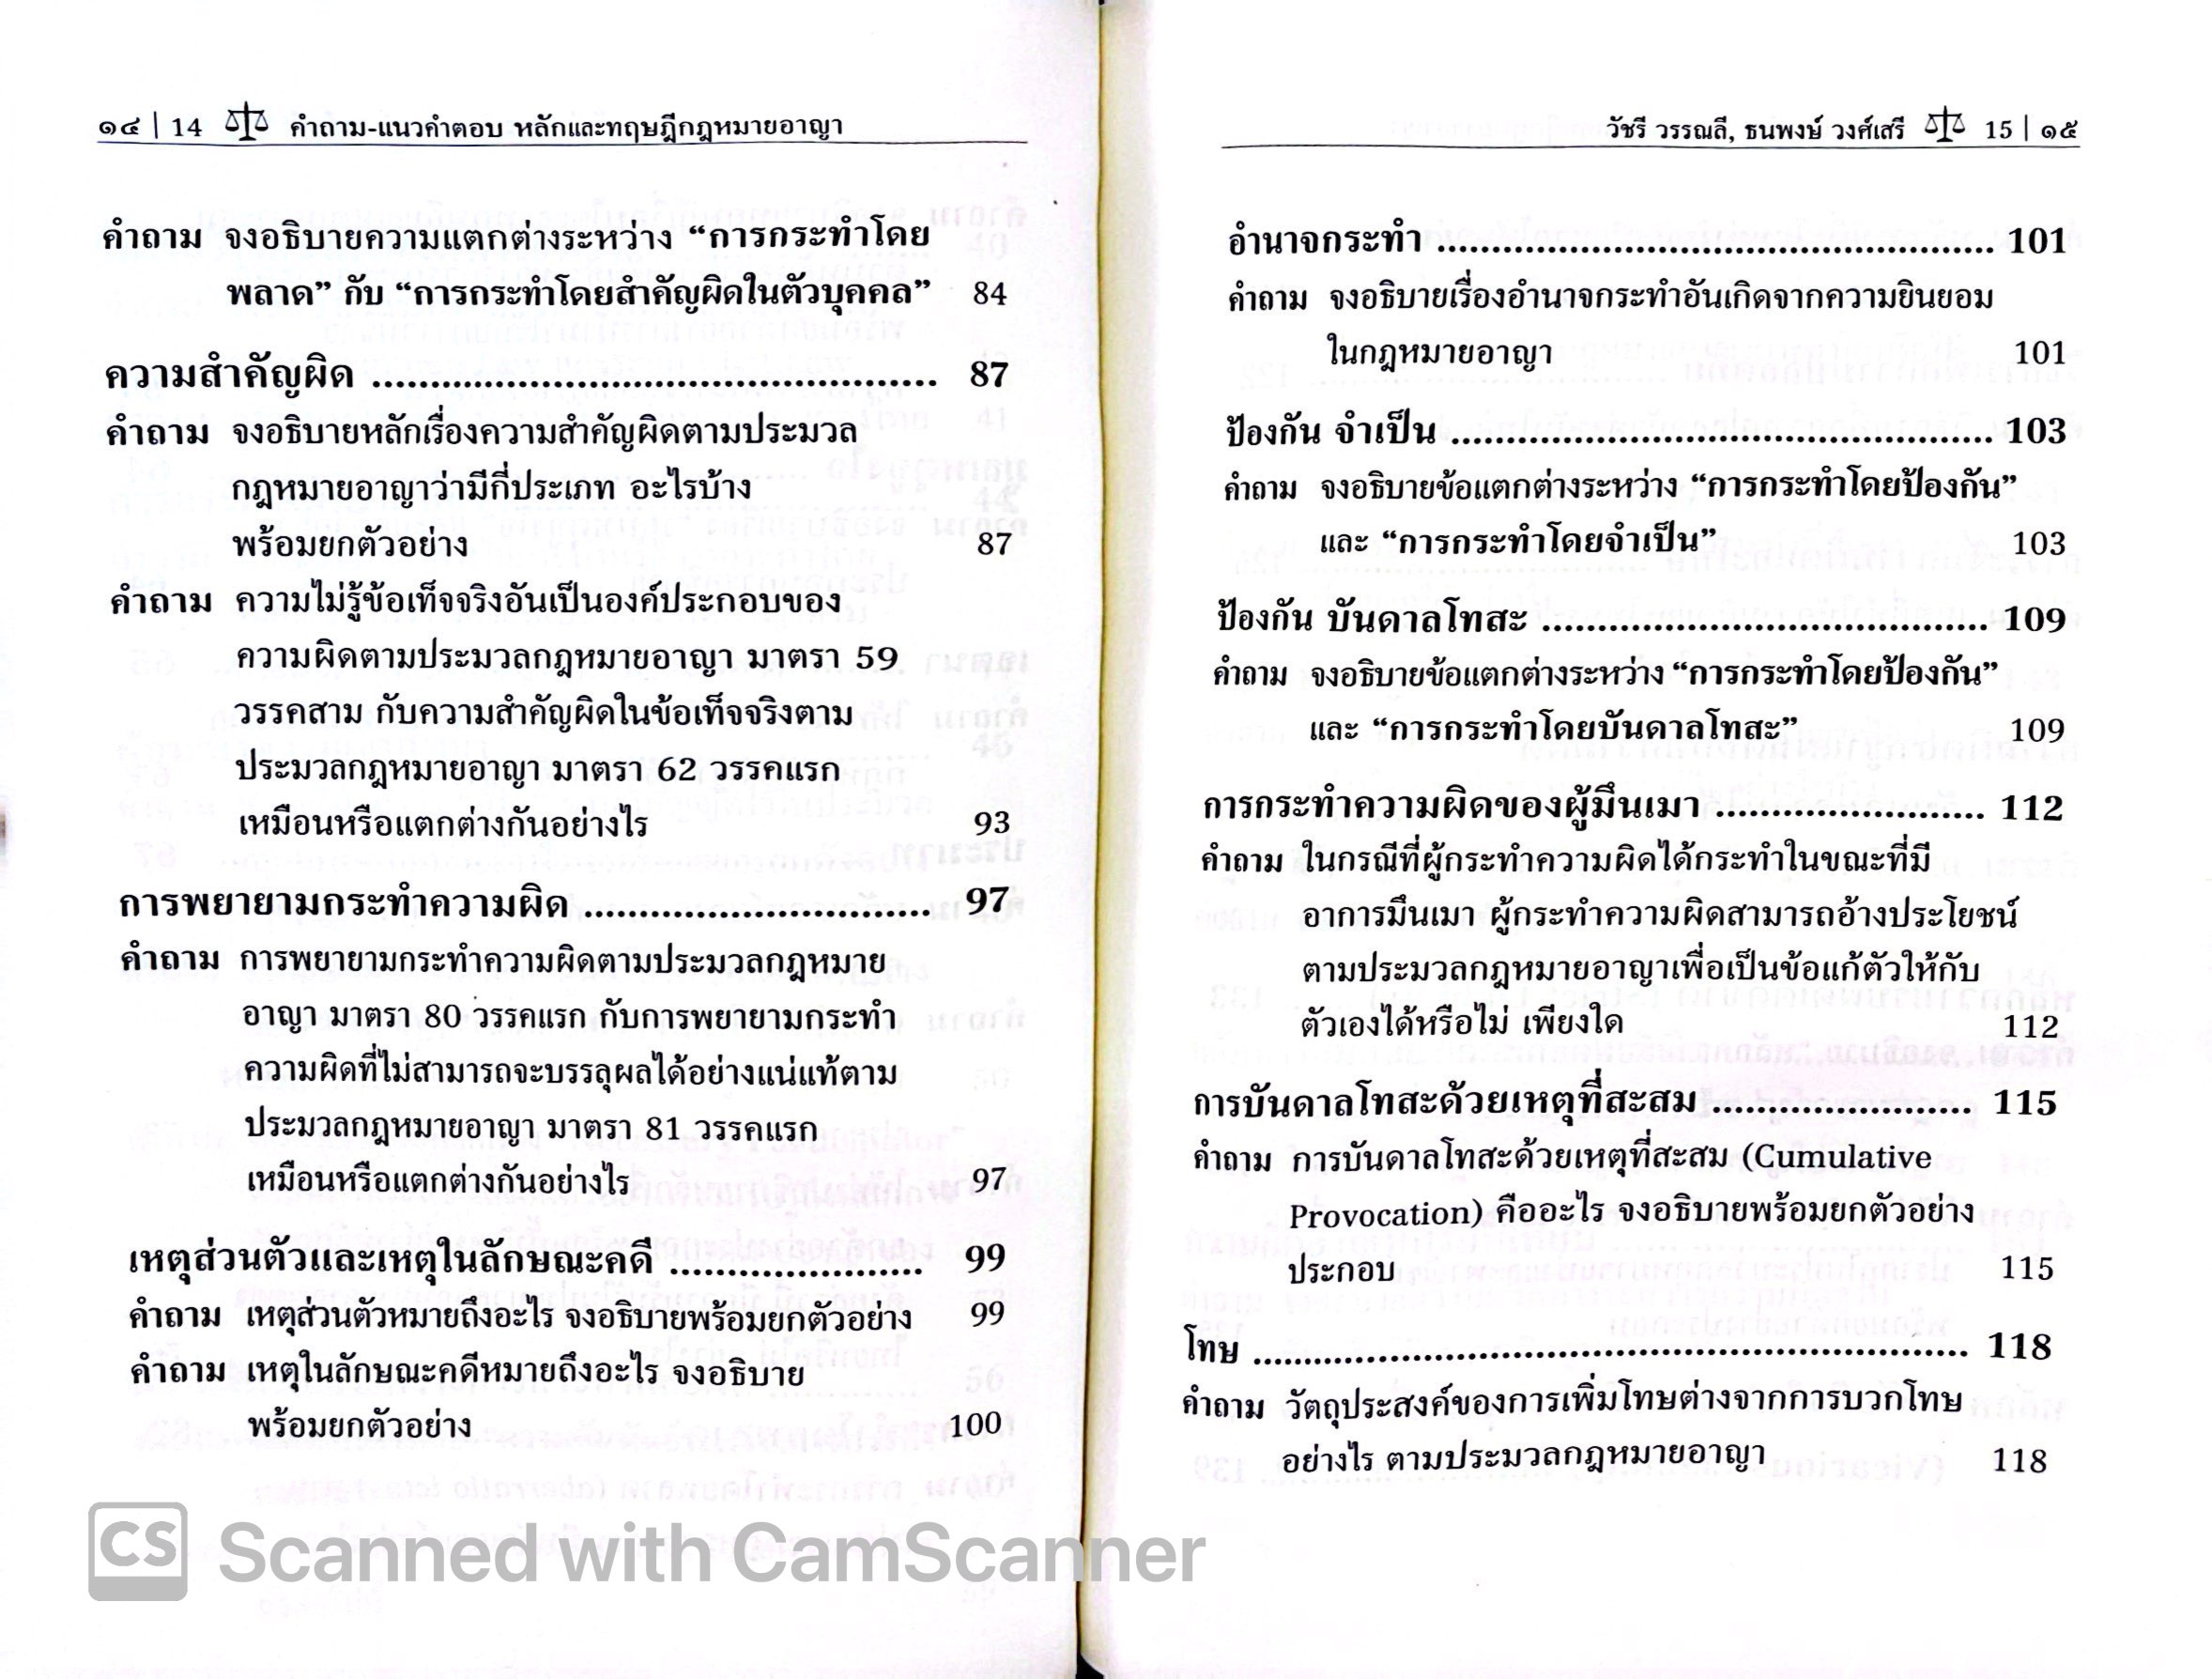 ๑๔ | 14 คำถาม-แนวคำตอบ หลักและทฤษฎีกฎหมายอาญา
คำถาม จงอธิบายความแตกต่างระหว่าง “การกระทำโดย
พลาด” กับ “การกระทำโดยสำคัญผิดในตัวบุคคล” 84
ความสำคัญผิด ................................................ 87
คำถาม จงอธิบายหลักเรื่องความสำคัญผิดตามประมวล
กฎหมายอาญาว่ามีกี่ประเภท อะไรบ้าง
พร้อมยกตัวอย่าง 87
คำถาม ความไม่รู้ข้อเท็จจริงอันเป็นองค์ประกอบของ
ความผิดตามประมวลกฎหมายอาญา มาตรา 59
วรรคสาม กับความสำคัญผิดในข้อเท็จจริงตาม
ประมวลกฎหมายอาญา มาตรา 62 วรรคแรก
เหมือนหรือแตกต่างกันอย่างไร 93
การพยายามกระทำความผิด.............................. 97
คำถาม การพยายามกระทำความผิดตามประมวลกฎหมาย
อาญา มาตรา 80 วรรคแรก กับการพยายามกระทำ
ความผิดที่ไม่สามารถจะบรรลุผลได้อย่างแน่แท้ตาม
ประมวลกฎหมายอาญา มาตรา 81 วรรคแรก
เหมือนหรือแตกต่างกันอย่างไร 97
เหตุส่วนตัวและเหตุในลักษณะคดี ...................... 99
คำถาม เหตุส่วนตัวหมายถึงอะไร จงอธิบายพร้อมยกตัวอย่าง 99
คำถาม เหตุในลักษณะคดีหมายถึงอะไร จงอธิบาย
พร้อมยกตัวอย่าง 100
วัชรี วรรณลี, ธนพงษ์ วงศ์เสรี 15 | ๑๕
อำนาจกระทำ ................................................ 101
คำถาม จงอธิบายเรื่องอำนาจกระทำอันเกิดจากความยินยอม
ในกฎหมายอาญา 101
ป้องกัน จำเป็น ............................................... 103
คำถาม จงอธิบายข้อแตกต่างระหว่าง “การกระทำโดยป้องกัน”
และ “การกระทำโดยจำเป็น” 103
ป้องกัน บันดาลโทสะ ....................................... 109
คำถาม จงอธิบายข้อแตกต่างระหว่าง “การกระทำโดยป้องกัน”
และ “การกระทำโดยบันดาลโทสะ” 109
การกระทำความผิดของผู้มึนเมา........................ 112
คำถาม ในกรณีที่ผู้กระทำความผิดได้กระทำในขณะที่มี
อาการมึนเมา ผู้กระทำความผิดสามารถอ้างประโยชน์
ตามประมวลกฎหมายอาญาเพื่อเป็นข้อแก้ตัวให้กับ
ตัวเองได้หรือไม่ เพียงใด 112
การบันดาลโทสะด้วยเหตุที่สะสม ....................... 115
คำถาม การบันดาลโทสะด้วยเหตุที่สะสม (Cumulative
Provocation) คืออะไร จงอธิบายพร้อมยกตัวอย่าง
ประกอบ 115
โทษ ............................................................. 118
คำถาม วัตถุประสงค์ของการเพิ่มโทษต่างจากการบวกโทษ
อย่างไร ตามประมวลกฎหมายอาญา 118
CS Scanned with CamScanner